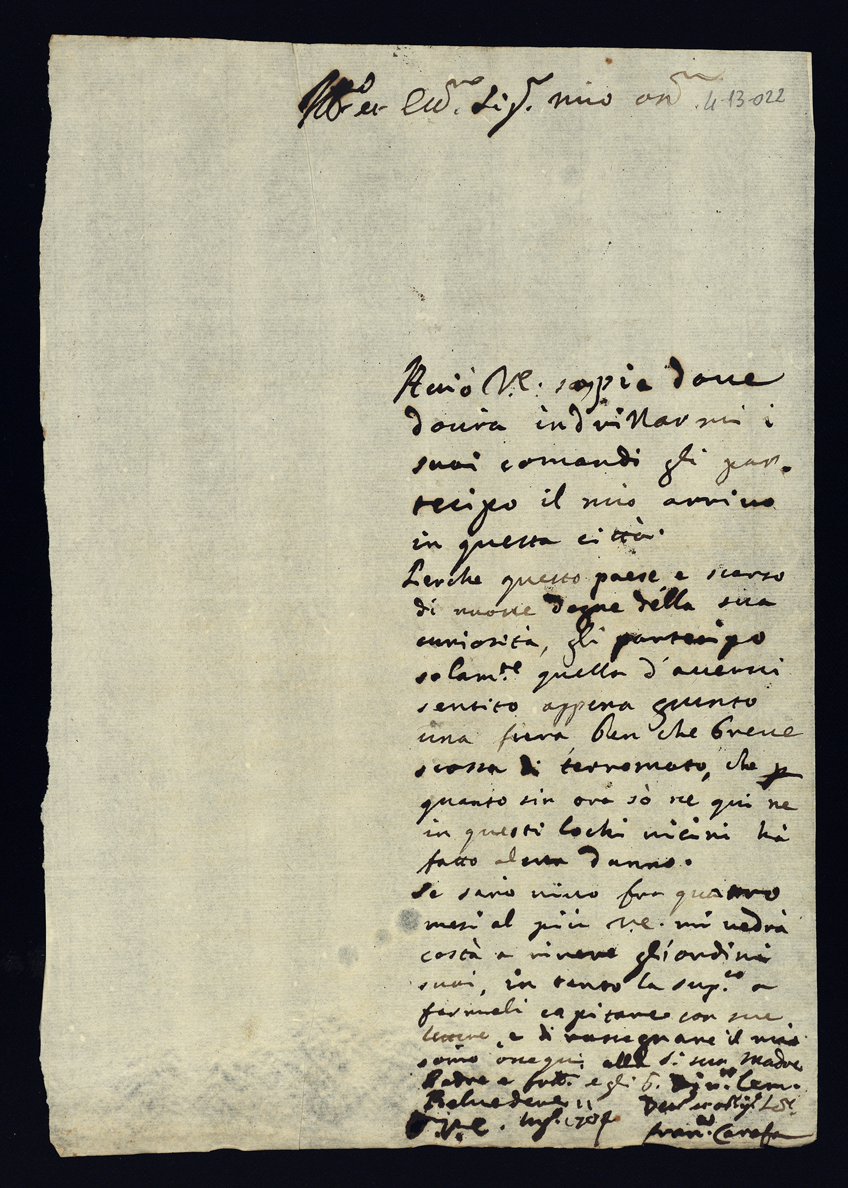 Ill.mo et Ecc.mo Sig.r mio oss.mo 4-13-022
Acciò V.E. sappia dove
dovrà indrizzarmi i
suoi comandi gli par-
tecipo il mio arrivo
in questa città.
Perche questo paese e scarso
di nuove degne della sua
curiosità, gli partecipo
solam.te quella d'averci
sentito appena giunto
una fiera ben che breve
scossa di terremoto, che p
quanto sin ora sò ne qui ne
in questi lochi vicini hà
fatto alcun danno.
Se sarò vivo fra quattro
mesi al più V.E. mi vedrà
costà a ricevere gli ordini
suoi, in tanto la sup.co a
farmeli capitare con sue
lettere, e di rassegnare il mio
somo ossequi alla Si. sua Madre
Padre e frat.
Belvedere 11
V.E.
Fran.co Carafa